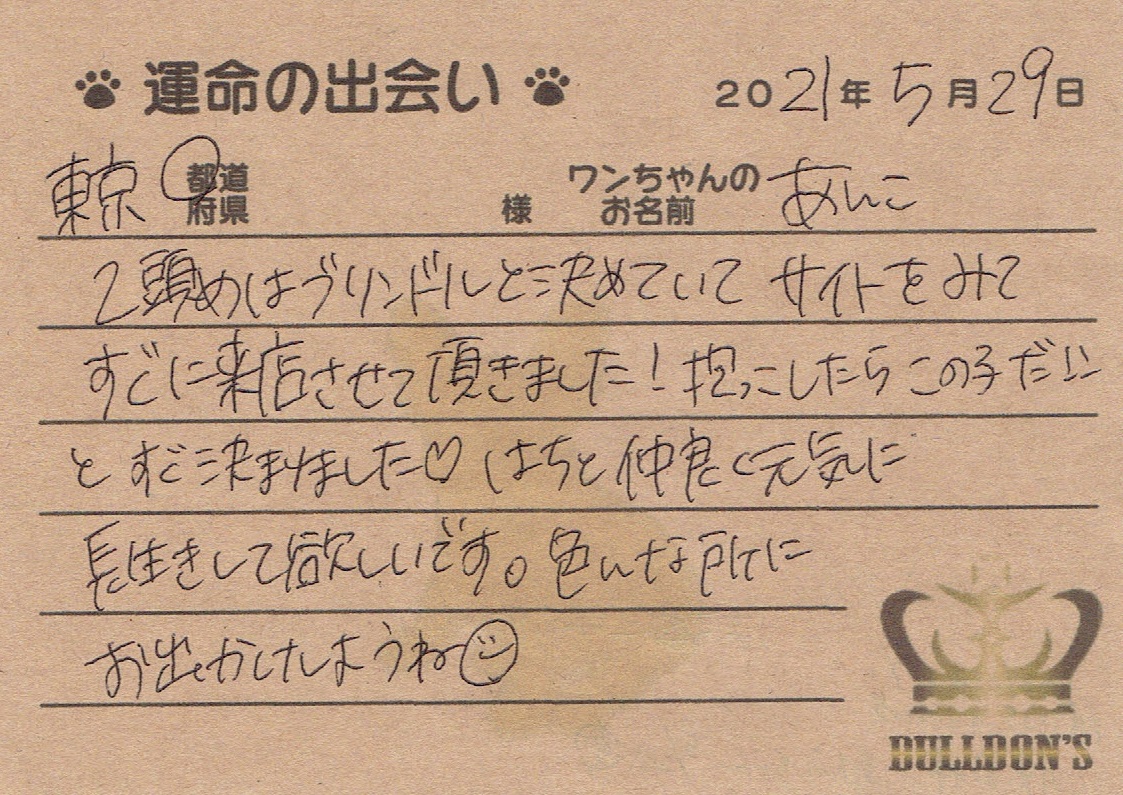 運命の出会い 2021年5月29日
東京 都道府県 様 ワンちゃんのお名前 あんこ
2頭めはブリンドルと決めていて サイトをみて
すぐに来店させて頂きました!抱っこしたらこの子だ!!
と すぐ決まりました♡ はちと仲良く元気に
長生きして欲しいです。色んな所に
お出かけしようね☺
BULLDON'S